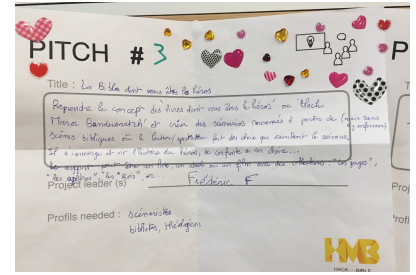 PITCH # 3
P
Title : La Bible dont vous êtes le héros
Reprendre le concept des livres dont vous êtes le héros' ou 'black
Mirror Bandersnatch' et créer des scénarios romancés à partir de (mais sans
s'y enfermer)
scènes bibliques où le lecteur/spectateur fait des choix qui orientent le scénario.
Il s'immerge et vit l'histoire du héros, se confronte à ses choix...
Le support peut être un livre, un film "les juges",
"les apôtres", "les Rois", ou...
Project leader (s) Frédéric F
Proj
Profils needed : scénaristes
biblistes, théologiens
Profi
HMB
HACK MY BIBLE